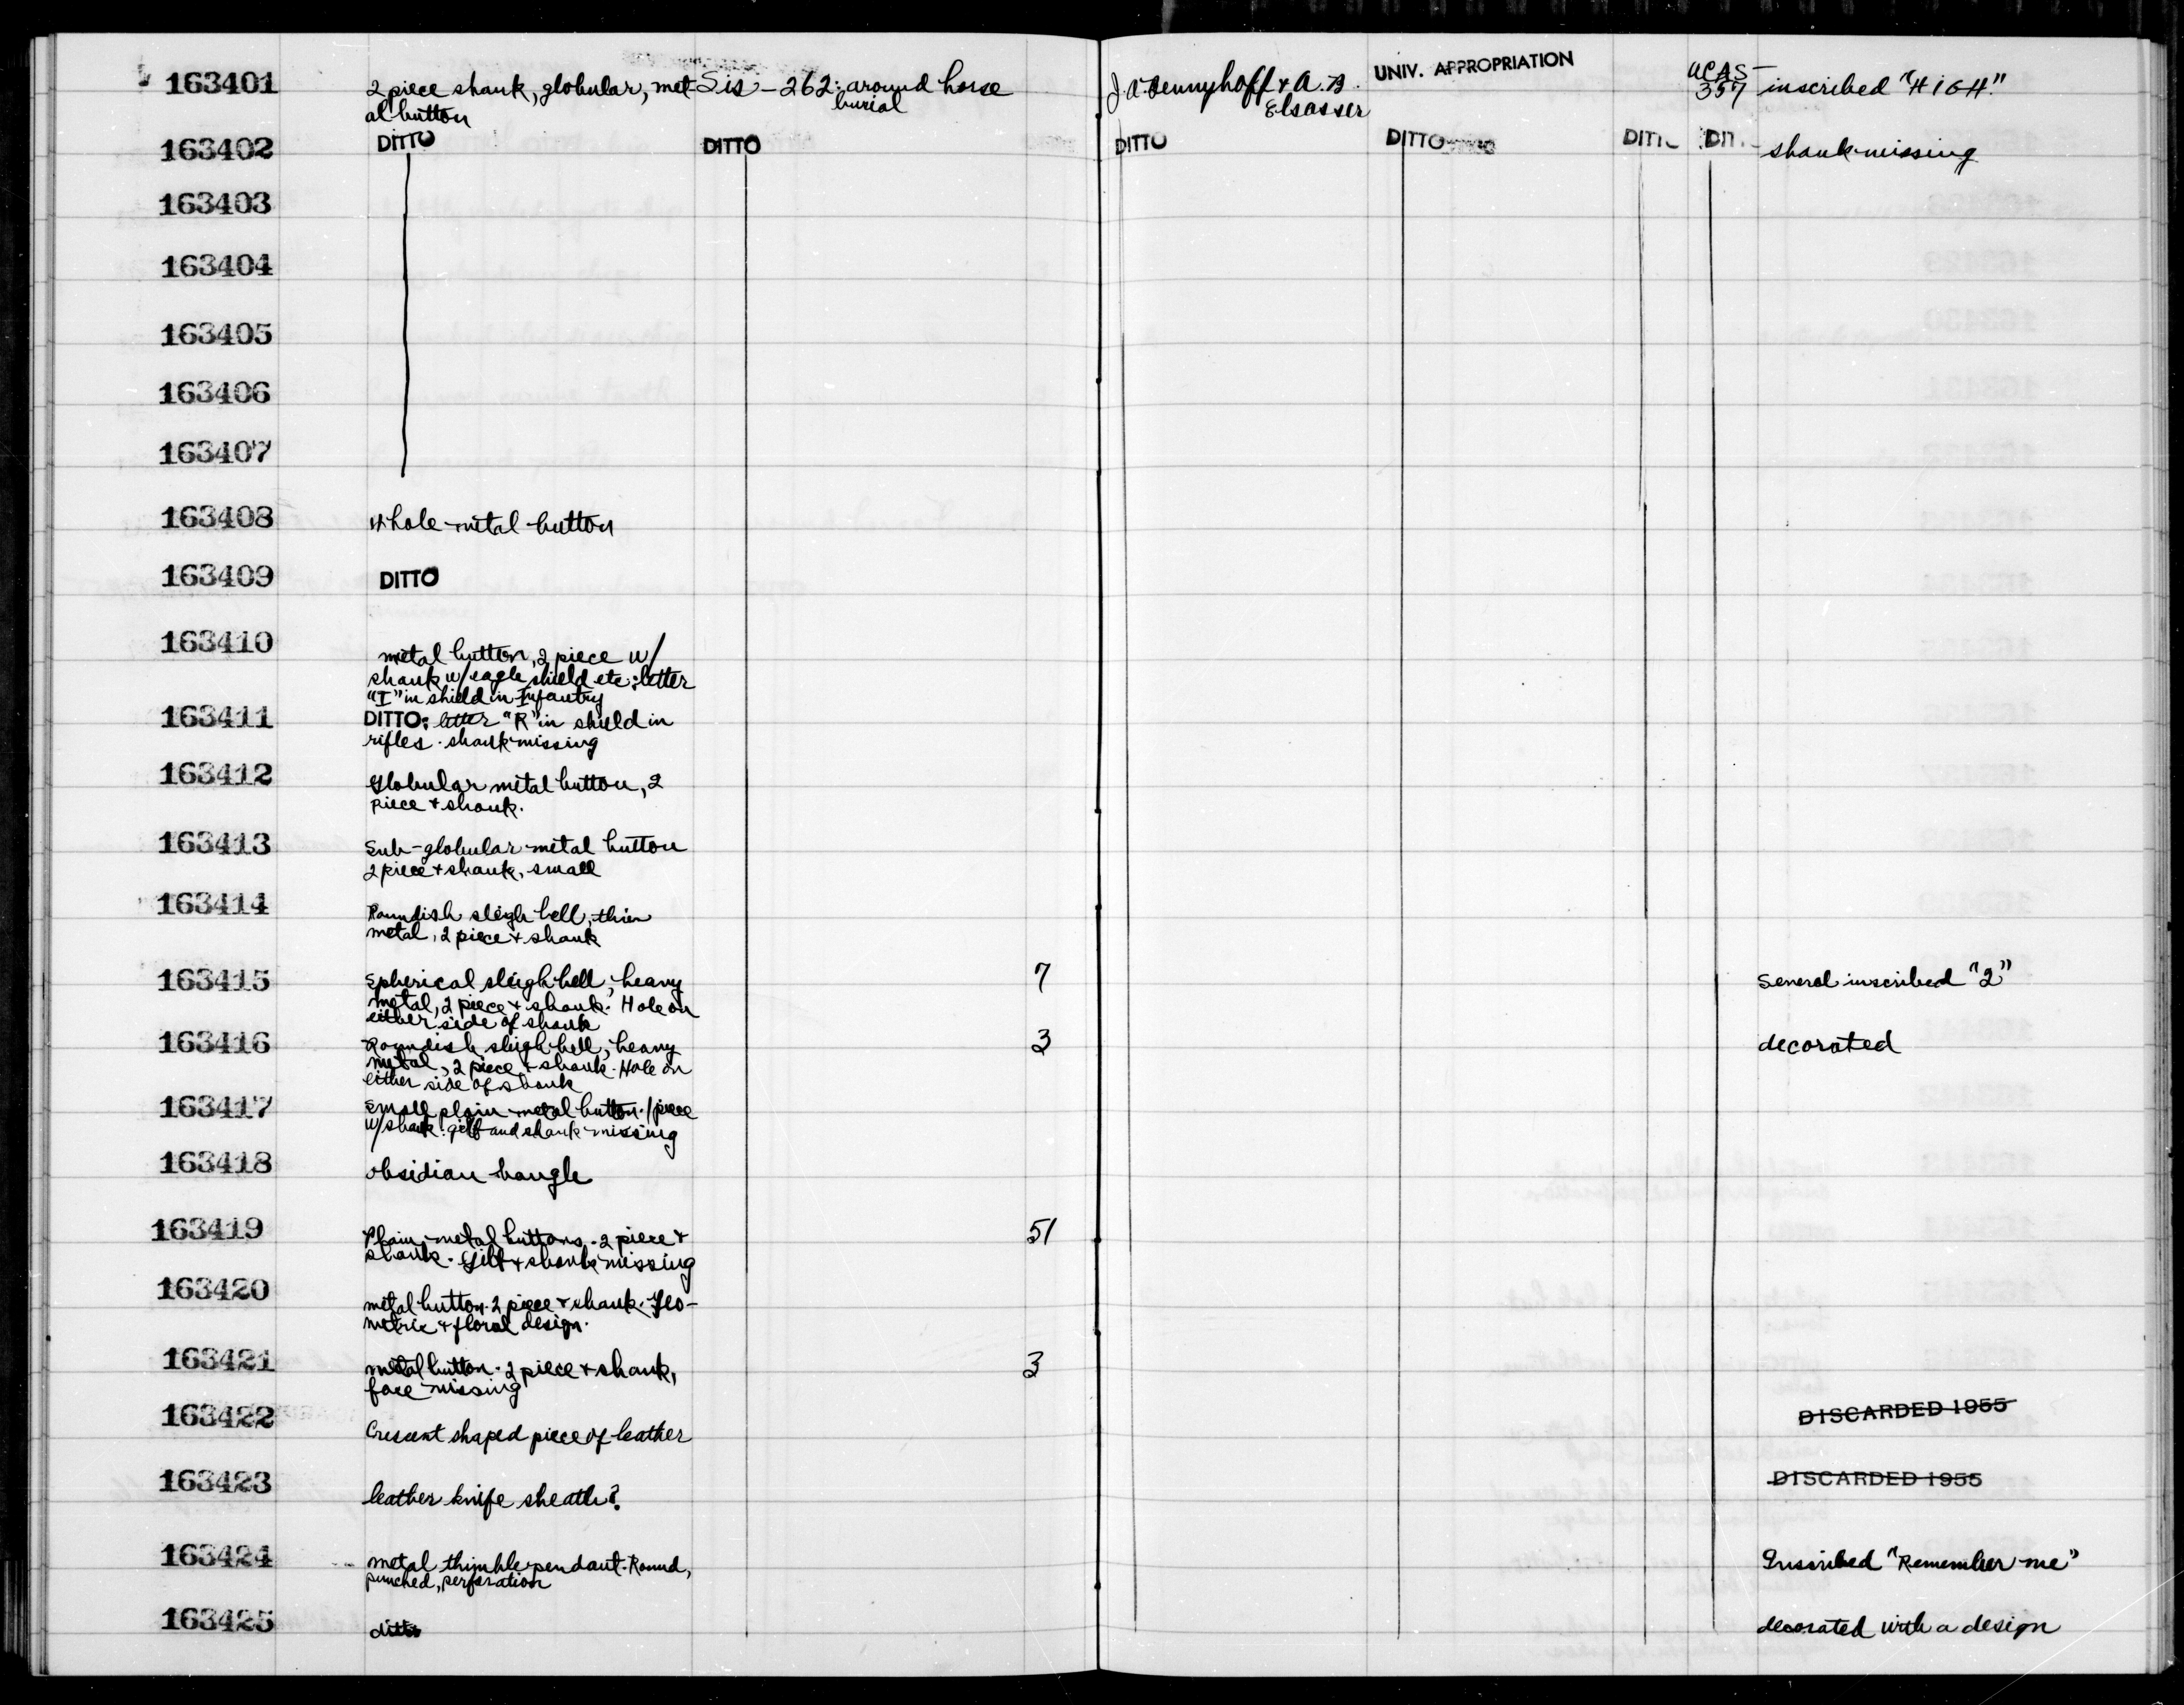 163401 2 piece shank, globular, met- Sis-262: around horse J.A. Bennyhoff & A.B. UNIV. APPROPRIATION UCAS- inscribed "HIGH"
al button burial Elsasser 357
163402 DITTO DITTO DITTO DITTO DITTO DIT shank missing
163403
163404
163405
163406
163407
163408 Whole metal button
163409 DITTO
163410 metal button, 2 piece w/
shank w/ eagle shield etc: letter
"I" in shield in Infantry
163411 DITTO: letter "R" in shield in
rifles. shank missing
163412 Globular metal button, 2
piece & shank.
163413 Sub-globular metal button
2 piece & shank, small
163414 Roundish sleigh bell, thin
metal, 2 piece & shank
163415 Spherical sleigh bell, heavy 7 Several inscribed "2"
metal, 2 piece & shank. Hole on
either side of shank
163416 Roundish sleigh bell, heavy 3 decorated
metal, 2 piece & shank. Hole on
either side of shank
163417 Small plain metal button. 1 piece
w/shank: gilt and shank missing
163418 obsidian bangle
163419 Plain metal buttons. 2 piece & 51
shank. Gilt & shanks missing
163420 metal button. 2 piece & shank. Geo-
metric & floral design.
163421 metal button. 2 piece & shank, 3
face missing
163422 Crescent shaped piece of leather DISCARDED 1955
163423 leather knife sheath? DISCARDED 1955
163424 metal thimble pendant. Round, Inscribed "Remember me"
punched, perforation
163425 ditto decorated with a design